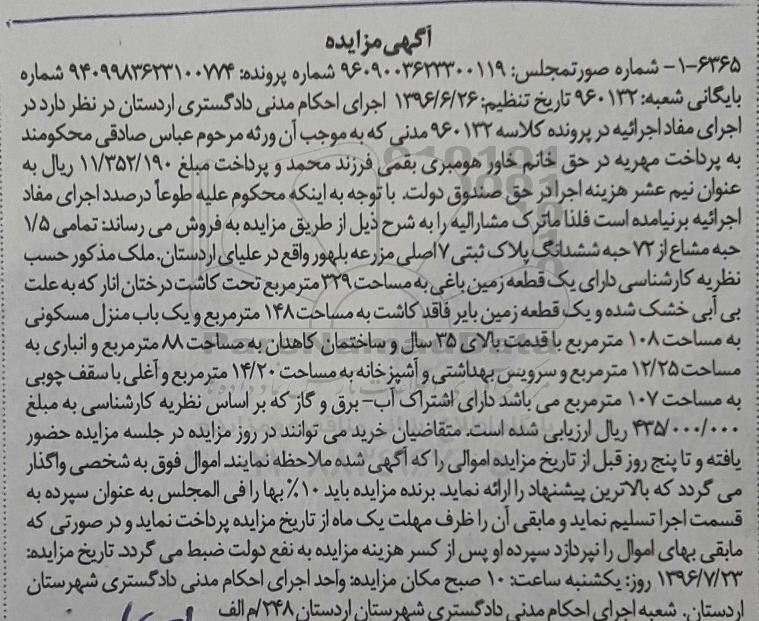 آگهی مزایده
۱-۶۳۶۵- شماره صورتمجلس: ۹۶۰۹۰۰۳۶۲۳۳۰۰۱۱۹ شماره پرونده: ۹۴۰۹۹۸۳۶۲۳۱۰۰۷۷۴ شماره
بایگانی شعبه: ۹۶۰۱۳۲ تاریخ تنظیم: ۱۳۹۶/۶/۲۶ اجرای احکام مدنی دادگستری اردستان در نظر دارد در
اجرای مفاد اجرائیه در پرونده کلاسه ۹۶۰۱۳۲ مدنی که به موجب آن ورثه مرحوم عباس صادقی محکومند
به پرداخت مهریه در حق خانم خاور هومبری بقمی فرزند محمد و پرداخت مبلغ ۱۱/۳۵۲/۱۹۰ ریال به
عنوان نیم عشر هزینه اجرا در حق صندوق دولت. با توجه به اینکه محکوم علیه طوعاً درصدد اجرای مفاد
اجرائیه برنیامده است فلذا ماترک مشارالیه را به شرح ذیل از طریق مزایده به فروش می رساند: تمامی ۱/۵
حبه مشاع از ۷۲ حبه ششدانگ پلاک ثبتی ۷ اصلی مزرعه بلهور واقع در علیای اردستان. ملک مذکور حسب
نظریه کارشناسی دارای یک قطعه زمین باغی به مساحت ۳۲۹ مترمربع تحت کاشت درختان انار که به علت
بی آبی خشک شده و یک قطعه زمین بایر فاقد کاشت به مساحت ۱۴۸ مترمربع و یک باب منزل مسکونی
به مساحت ۱۰۸ مترمربع با قدمت بالای ۳۵ سال و ساختمان کاهدان به مساحت ۸۸ مترمربع و انباری به
مساحت ۱۲/۲۵ مترمربع و سرویس بهداشتی و آشپزخانه به مساحت ۱۴/۲۰ مترمربع و آغلی با سقف چوبی
به مساحت ۱۰۷ مترمربع می باشد دارای اشتراک آب- برق و گاز که بر اساس نظریه کارشناسی به مبلغ
۴۳۵/۰۰۰/۰۰۰ ریال ارزیابی شده است. متقاضیان خرید می توانند در روز مزایده در جلسه مزایده حضور
یافته و تا پنج روز قبل از تاریخ مزایده اموالی را که آگهی شده ملاحظه نمایند. اموال فوق به شخصی واگذار
می گردد که بالاترین پیشنهاد را ارائه نماید. برنده مزایده باید ۱۰٪ بها را فی المجلس به عنوان سپرده به
قسمت اجرا تسلیم نماید و مابقی آن را ظرف مهلت یک ماه از تاریخ مزایده پرداخت نماید و در صورتی که
مابقی بهای اموال را نپردازد سپرده او پس از کسر هزینه مزایده به نفع دولت ضبط می گردد. تاریخ مزایده:
۱۳۹۶/۷/۲۳ روز: یکشنبه ساعت: ۱۰ صبح مکان مزایده: واحد اجرای احکام مدنی دادگستری شهرستان
اردستان. شعبه اجرای احکام مدنی دادگستری شهرستان اردستان ۲۴۸/م الف